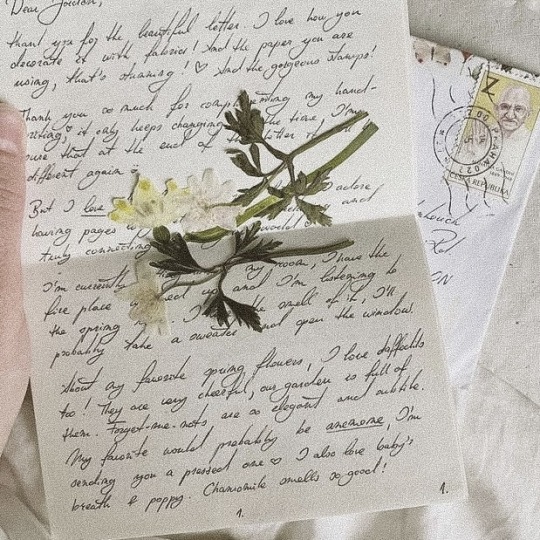 Dear Jordan,
thank you for the beautiful letter. I love how you
decorate it with fabrics! And the paper you are
using, that's stunning! ♡ And the gorgeous stamps!
Thank you so much for complimenting my hand-
writing, it only keeps changing the time, I'm
sure that at the end of the letter it
different again
But I love adore
having pages world and
truly connecting
I'm currently my room, I have the
fire place and I'm listening to
the spring the smell of it, I'll
probably take a sweater and open the window.
About my favorite spring flowers, I love daffodils
too! They are very cheerful, our garden is full of
them. Forget-me-nots are so elegant and subtile.
My favorite would probably be anemone, I'm
sending you a pressed one ♡ I also love baby's
breath & poppy. Chamomile smells so good!
1.
1.
Z
ČESKÁ REPUBLIKA